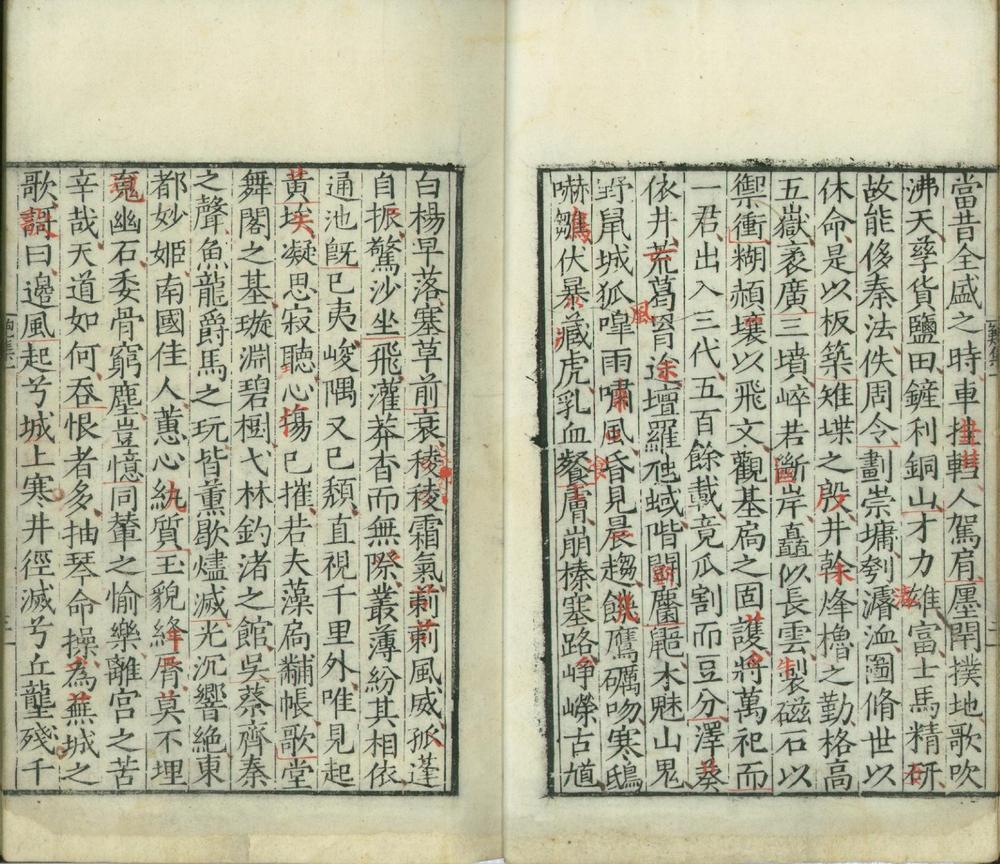 當昔全盛之時車挂轊人駕肩廛閈撲地歌吹
沸天孳貨鹽田鏟利銅山才力雄富士馬精研
故能侈秦法佚周令劃崇墉刳濬洫圖脩世以
休命是以板築雉堞之殷井幹烽櫓之勤格高
五嶽袤廣三墳崪若斷岸矗似長雲製磁石以
禦衝糊赬壤以飛文觀基扃之固護將萬祀而
一君出入三代五百餘載竟瓜割而豆分澤葵
依井荒葛罥途壇羅虺蜮階鬭麕鼯木魅山鬼
野鼠城狐嘷雨嘯風昏見晨趨飢鷹礪吻寒鴟
嚇雛伏暴藏虎乳血餐膚崩榛塞路崢嶸古馗
白楊早落塞草前衰稜稜霜氣蔌蔌風威孤蓬
自振驚沙坐飛灌莽杳而無際叢薄紛其相依
通池旣已夷峻隅又已頹直視千里外唯見起
黃埃凝思寂聽心傷已摧若夫藻扃黼帳歌堂
舞閣之基璇淵碧樹弋林釣渚之館吳蔡齊秦
之聲魚龍爵馬之玩皆薰歇燼滅光沉響絶東
都妙姬南國佳人蕙心紈質玉貌絳脣莫不埋
魂幽石委骨窮塵豈憶同輦之愉樂離宮之苦
辛哉天道如何吞恨者多抽琴命操為蕪城之
歌謌曰邊風起兮城上寒井徑滅兮丘壟殘千